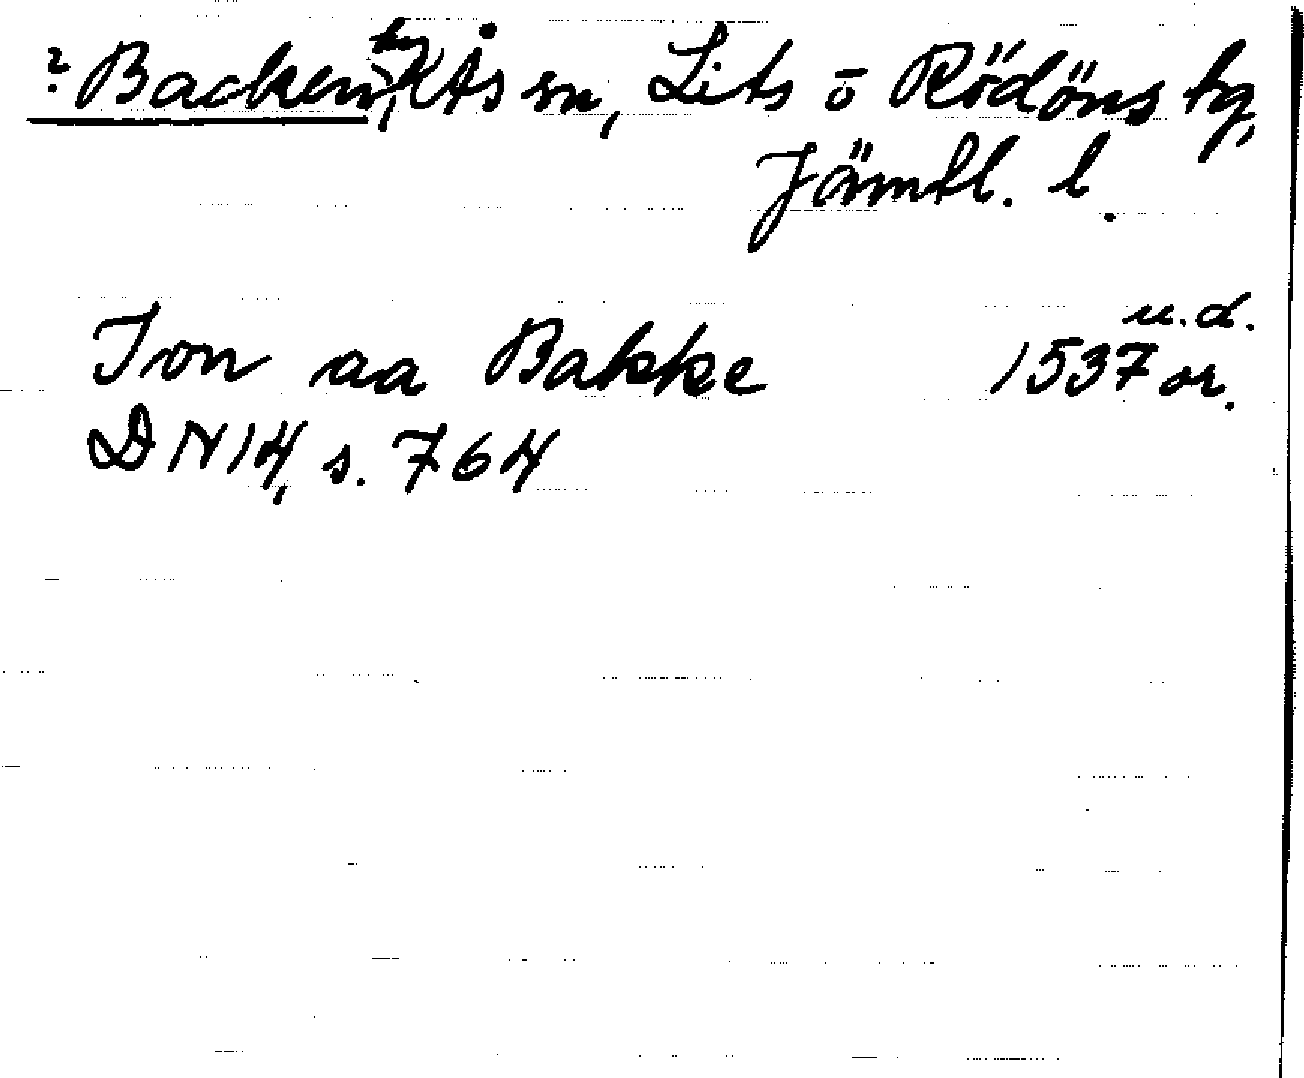 ? Backen, Ås sn, Lits o Rödöns tg,
Jämtl. l.
u.d.
Jon aa Bakke 1537 or.
DN 14, s. 764